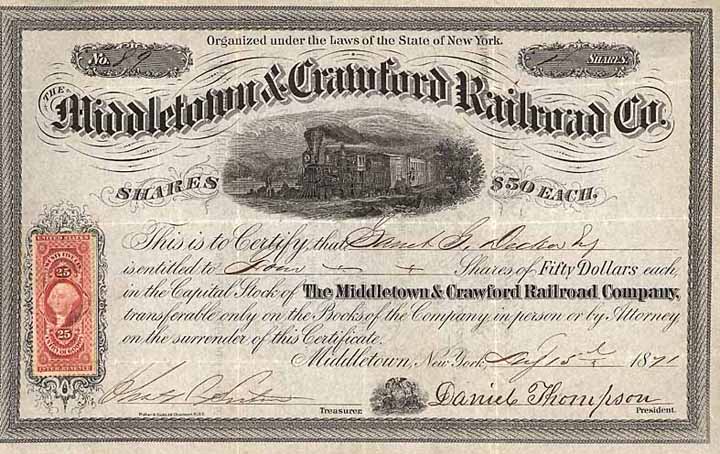 Organized under the Laws of the State of New York.
No. 89 SHARES.
THE Middletown & Crawford Railroad Co.
SHARES $50 EACH.
This is to Certify that
is entitled to Four Shares of Fifty Dollars each,
in the Capital Stock of The Middletown & Crawford Railroad Company,
transferable only on the Books of the Company in person or by Attorney
on the surrender of this Certificate.
UNITED STATES
25 25
INTER. REVENUE
Middletown, New York, 15 1871
Treasurer.
Daniel Thompson
President.